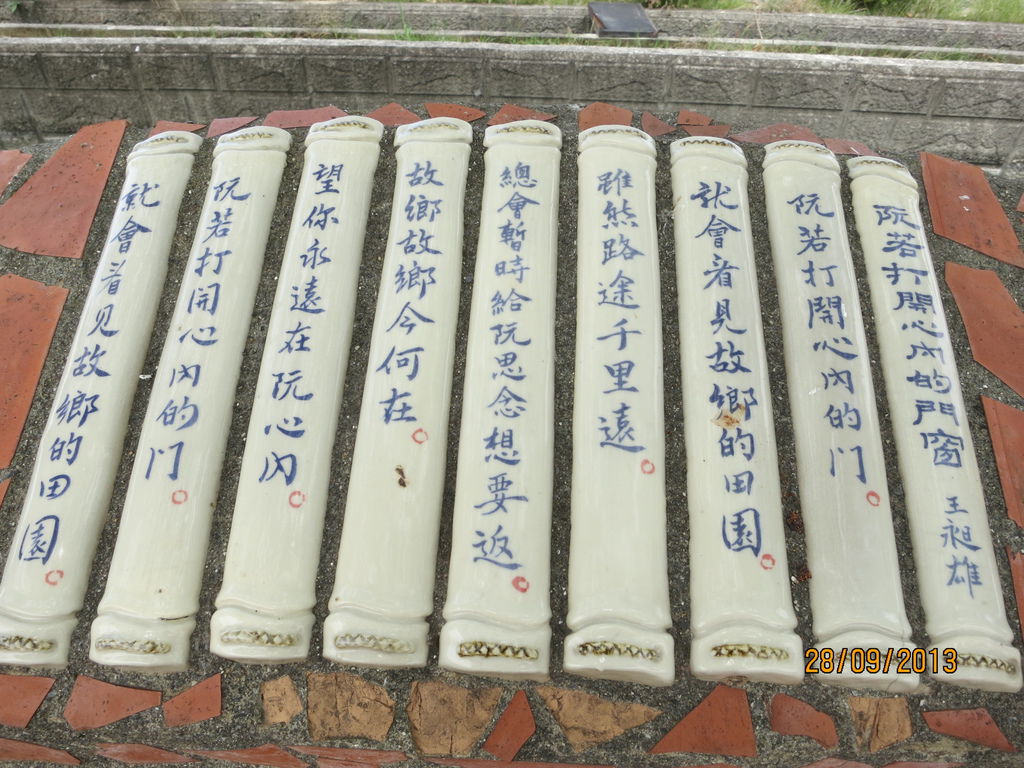 阮若打開心內的門窗 王昶雄
阮若打開心內的门
就會看見故鄉的田園
雖然路途千里遠
總會暫時給阮思念想要返
故鄉故鄉今何在
望你永遠在阮心內
阮若打開心內的门
就會看见故鄉的田園
28/09/2013